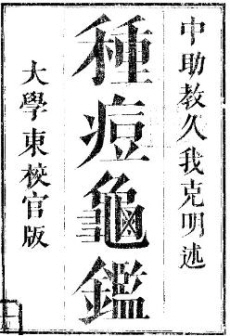 中助教久我克明述
種痘龜鑑
大學東校官版